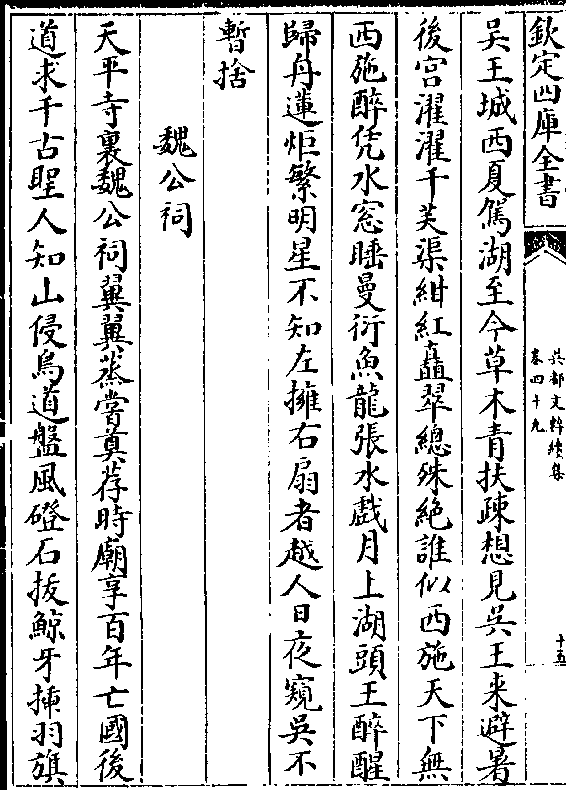 欽定四庫全書
吳都文粹續集
卷四十九
十五
吳王城西夏駕湖至今草木青扶疎想見吳王来避暑
後宫濯濯千芙渠紺紅矗翠總殊絶誰似西施天下無
西施醉凭水窓睡曼衍魚龍張水戲月上湖頭王醉醒
歸舟蓮炬繁明星不知左擁右扇者越人日夜窺吳不
暫捨
魏公祠
天平寺裏魏公祠翼翼蒸嘗奠荐時廟享百年亡國後
道求千古聖人知山侵鳥道盤風磴石拔鯨牙揷羽旗